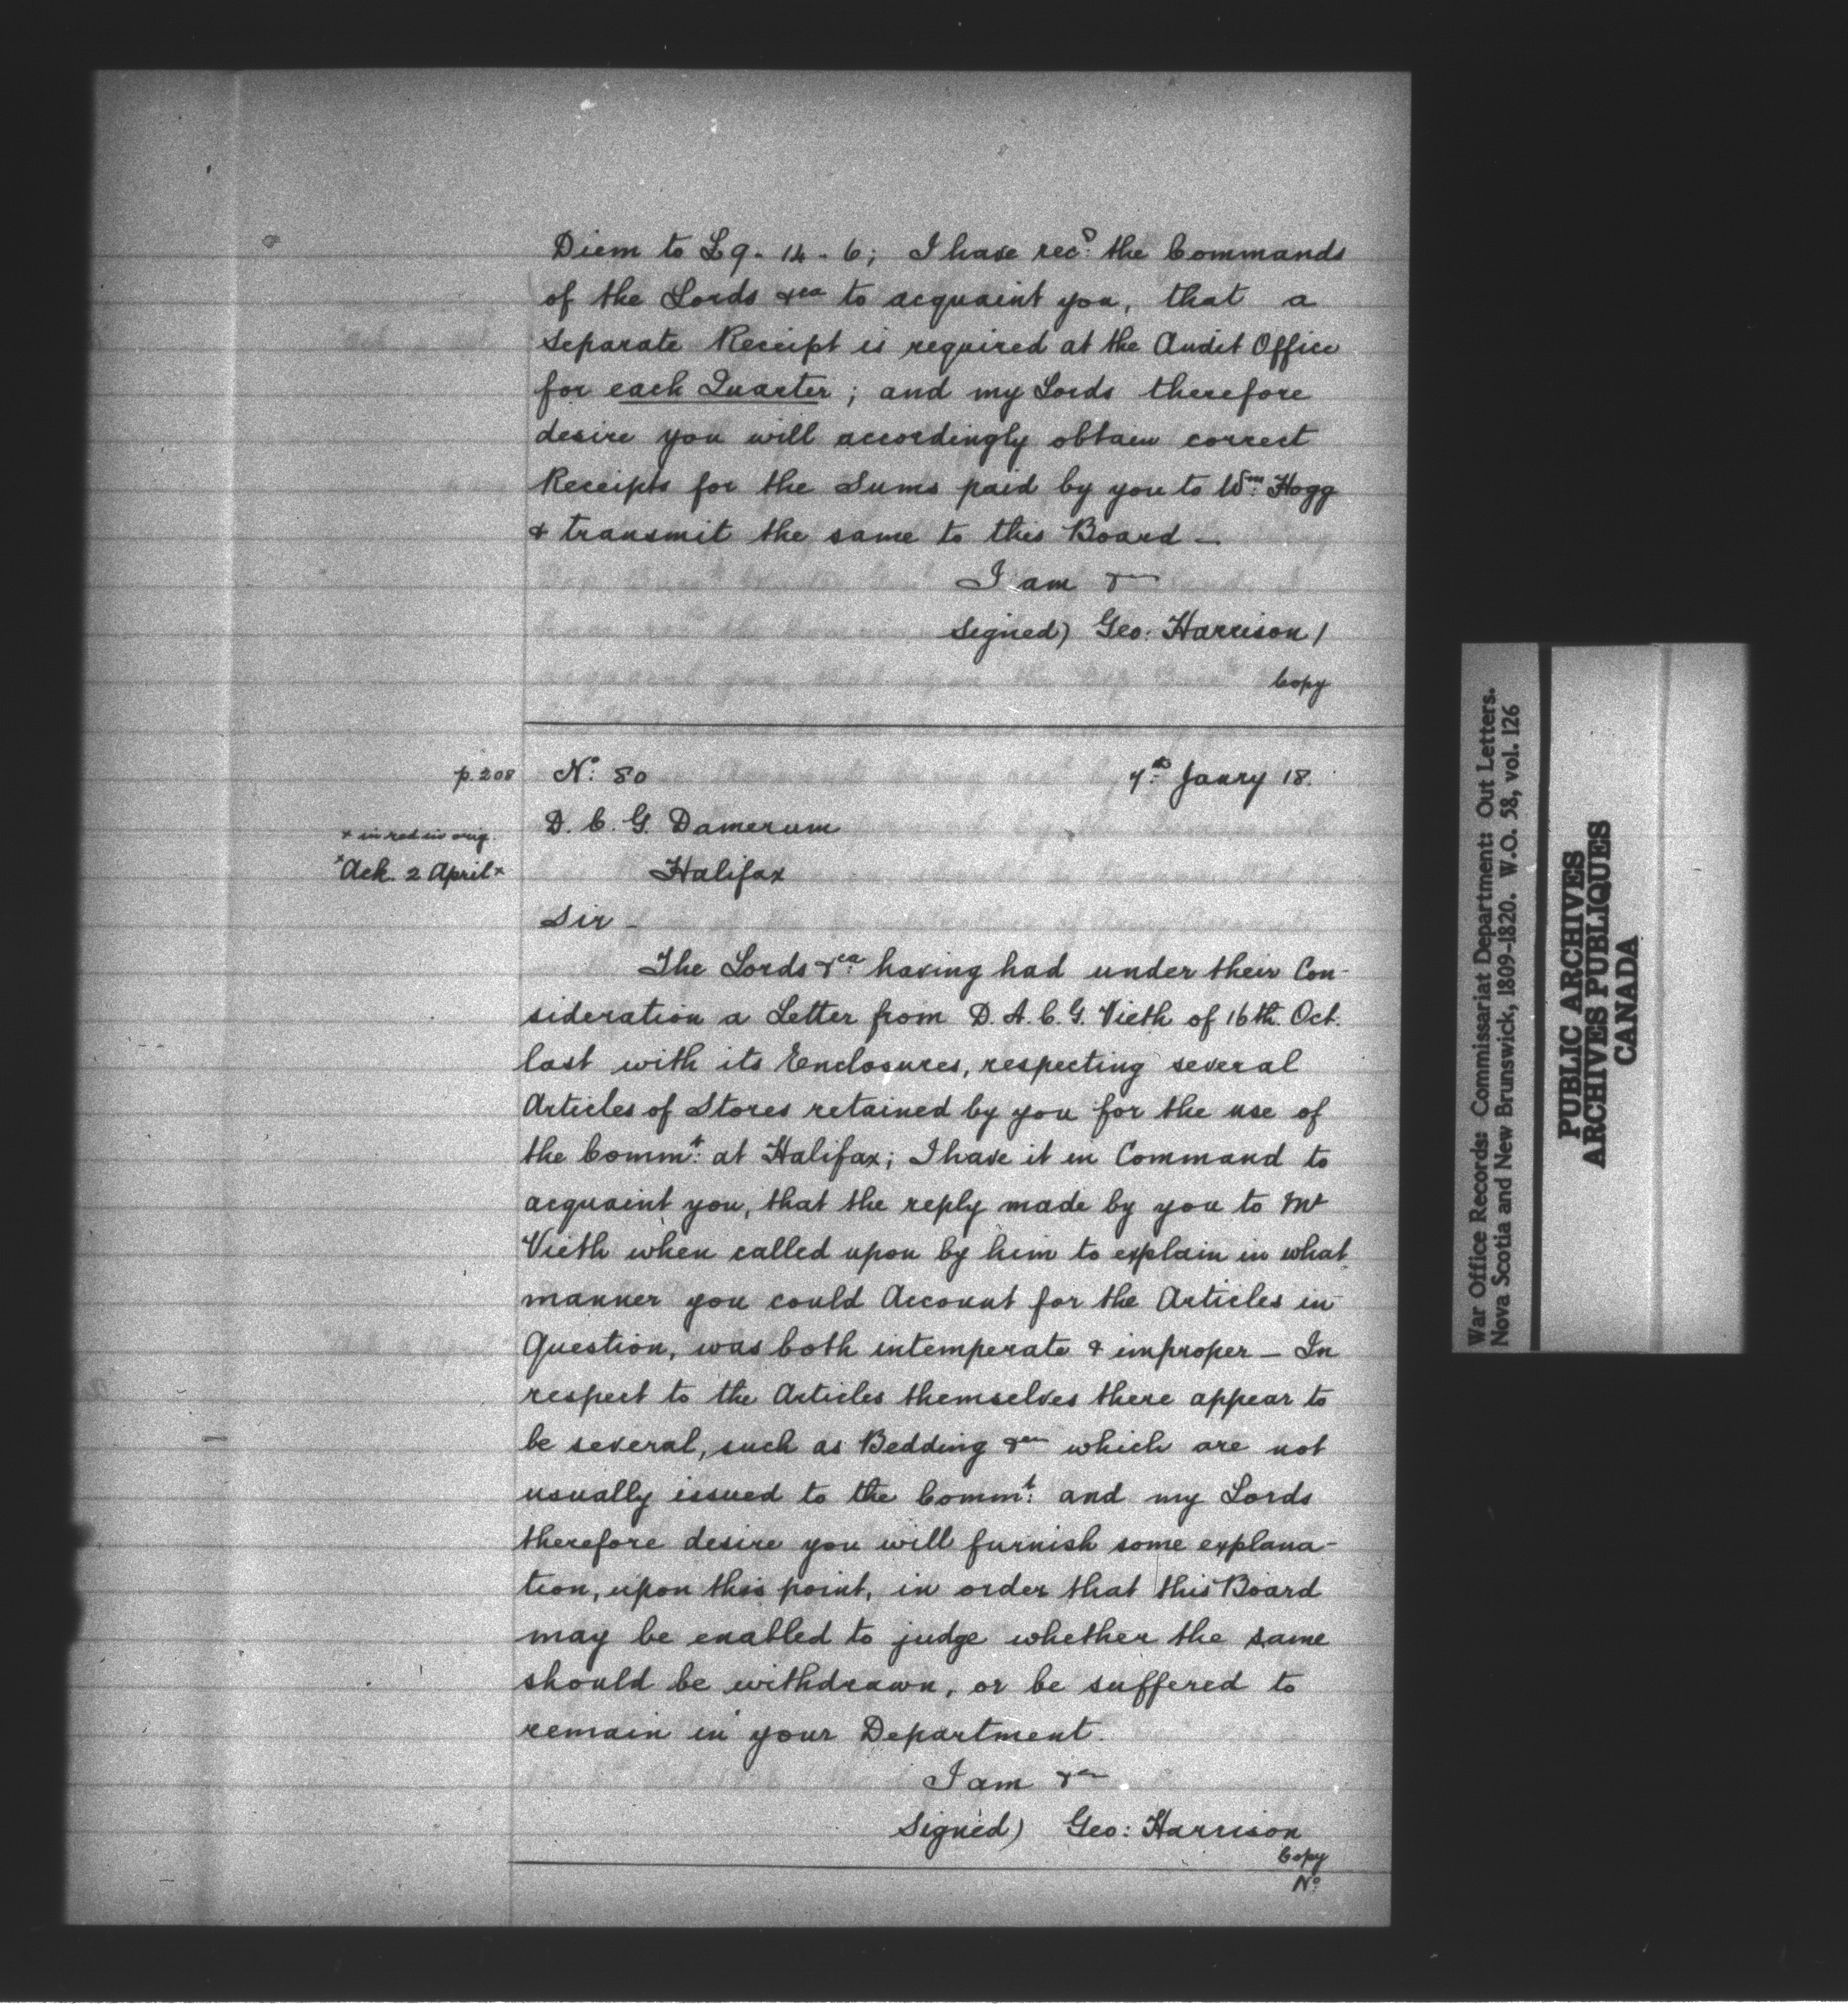 Diem to £9 - 14 - 6; I have recD: the Commands
of the Lords &ca to acquaint you, that a
separate Receipt is required at the Audit Office
for each Quarter; and my Lords therefore
desire you will accordingly obtain correct
Receipts for the Sums paid by you to Wm: Hogg
& transmit the same to this Board —
I am &
Signed) Geo: Harrison /
Copy
p. 208 No: 80 7th: Janry 18.
D. C. G. Damerum
x in red in orig.
xAck. 2 Aprilx Halifax
Sir -
The Lords &ca: having had under their Con-
sideration a Letter from D. A. C. G. Vieth of 16th. Oct.
last with its Enclosures, respecting several
Articles of Stores retained by you for the use of
the Commt: at Halifax; I have it in Command to
acquaint you, that the reply made by you to Mr
Vieth when called upon by him to explain in what
manner you could Account for the Articles in
Question, was both intemperate & improper — In
respect to the Articles themselves there appear to
be several, such as Bedding &ca which are not
usually issued to the Commt: and my Lords
therefore desire you will furnish some explana-
tion, upon this point, in order that this Board
may be enabled to judge whether the same
should be withdrawn, or be suffered to
remain in your Department.
I am &ca
Signed) Geo: Harrison
Copy
No:
War Office Records: Commissariat Department: Out Letters.
Nova Scotia and New Brunswick, 1809-1820. W.O. 58, vol. 126
PUBLIC ARCHIVES
ARCHIVES PUBLIQUES
CANADA